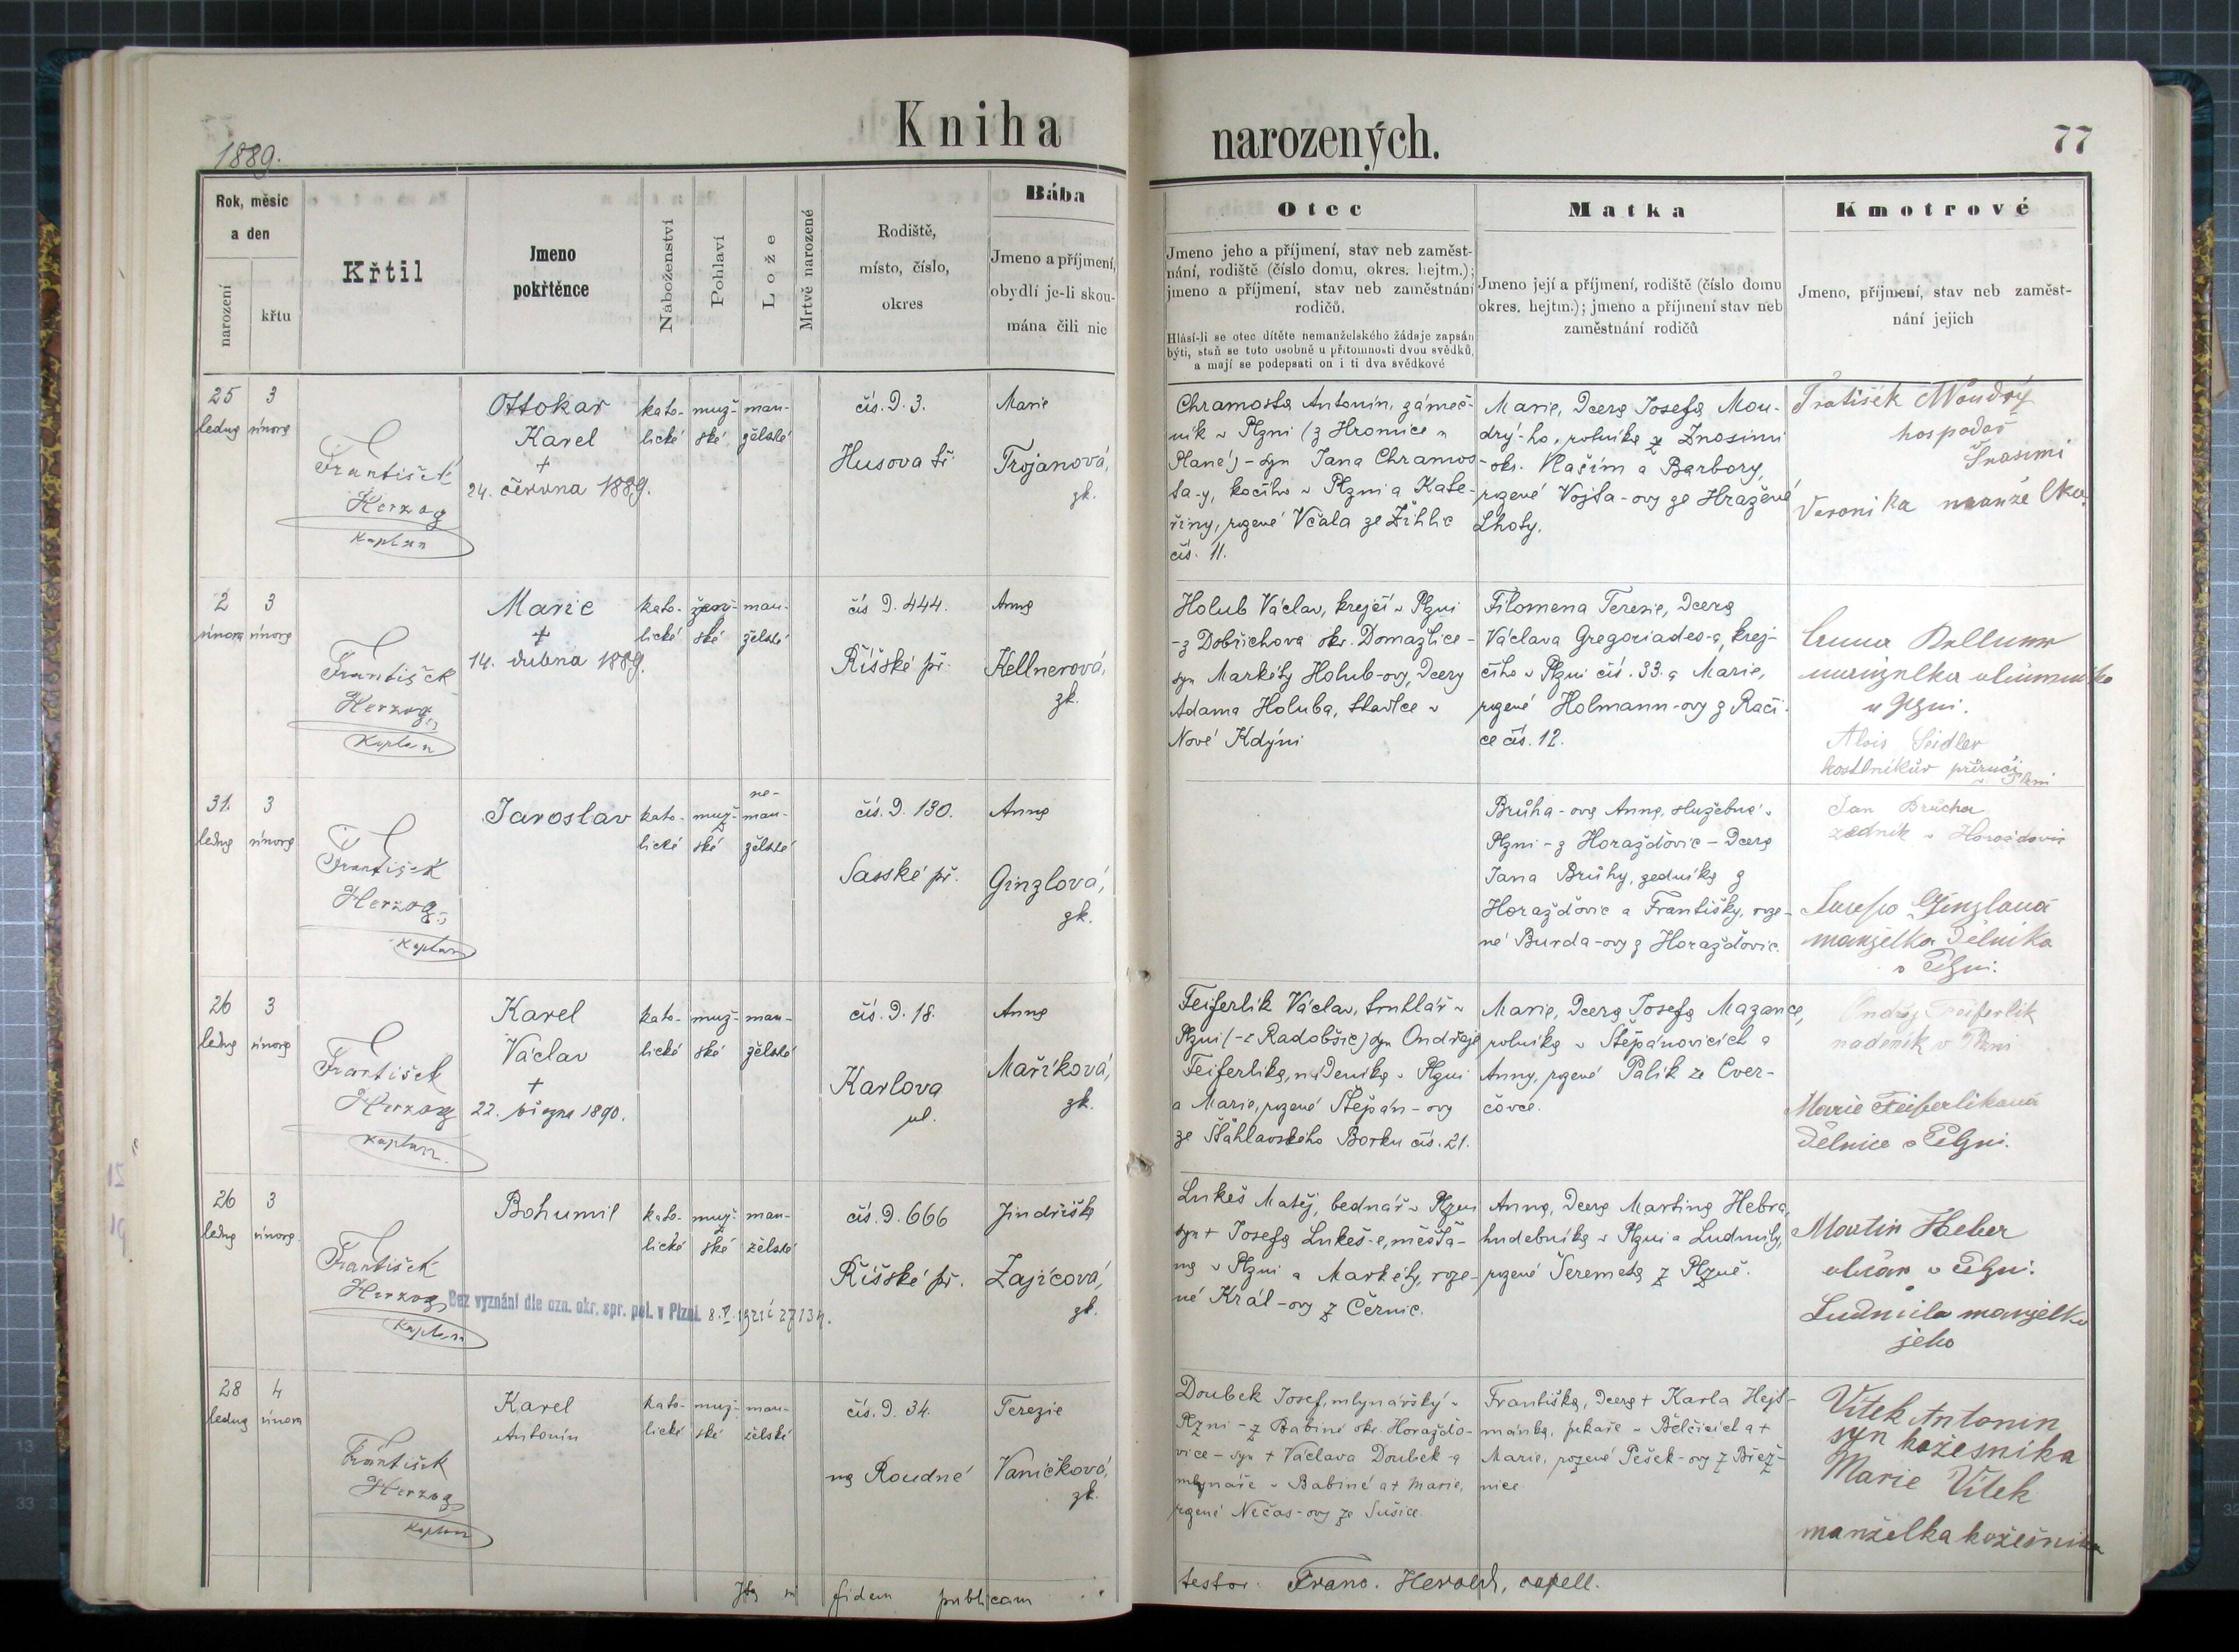 Kniha
narozených.
77
1889.
Rok, měsíc
a den
narození
křtu
Křtil
Jmeno
pokřtěnce
Náboženství
Pohlaví
Lože
Mrtvě narozené
Rodiště,
místo, číslo,
okres
Bába
Jmeno a příjmení,
obydlí je-li skou-
mána čili nic
Otec
Jmeno jeho a příjmení, stav neb zaměst-
nání, rodiště (číslo domu, okres. hejtm.);
jmeno a příjmení, stav neb zaměstnání
rodičů.
Hlásí-li se otec dítěte nemanželského žádaje zapsán
býti, staň se toto osobně u přítomnosti dvou svědků,
a mají se podepsati on i ti dva svědkové
Matka
Jmeno její a příjmení, rodiště (číslo domu
okres. hejtm.); jmeno a příjmení stav neb
zaměstnání rodičů
Kmotrové
Jmeno, příjmení, stav neb zaměst-
nání jejich
25
ledna
3
února
František
Herzog
kaplan
Ottokar
Karel
+
24. června 1889.
kato-
lické
muž-
ské
man-
želské
čís. D. 3.
Husova tř.
Marie
Trojanová,
zk.
Chramosta Antonín, zámeč-
ník v Plzni (z Hromice u
Plané) - syn Jana Chramos-
ta-y, kočího v Plzni a Kate-
řiny, rozené Včala ze Žihlic
čís. 11.
Marie, dcera Josefa Mou-
drý-ho, rolníka ze Znosimi
- okr. Vlaším a Barbory,
rozené Vojta-ovy ze Hrazené
Lhoty.
Fratišek Moudrý
hospodař
Veronika manželka
2
února
3
února
František
Herzog
Kaplan
Marie
+
14. dubna 1889.
kato-
lické
žen-
ské
man-
želské
čís D. 444.
Říšské př.
Anna
Kellnerová,
zk.
Holub Václav, krejčí v Plzni
- z Dobřichova okr. Domažlice -
syn Markéty Holub-ovy, dcery
Adama Holuba, tkadlce v
Nové Kdýni
Filomena Terezie, dcera
Václava Gregoriades-a, krej-
čího v Plzni čís. 33. a Marie,
rozené Holmann-ovy z Rači-
ce čís. 12.
manželka
v Plzni.
Alois Seidler
31.
ledna
3
února
František
Herzog
Kaplan
Jaroslav
kato-
lické
muž-
ské
ne-
man-
želské
čís. D. 130.
Sasské př.
Anna
Ginzlová,
zk.
Brůha-ova Anna, služebná v
Plzni - z Horažďovic - dcera
Jana Brůhy, zedníka z
Horažďovic a Františky, roze-
né Burda-ovy z Horažďovic.
Jan Brucha
zedník v
Ginzlová
manželka dělníka
v Plzni.
26
ledna
3
února
František
Herzog
kaplan
Karel
Václav
+
22. března 1890.
kato-
lické
muž-
ské
man-
želské
čís. D. 18.
Karlova
ul.
Anna
Maříková,
zk.
Feiferlík Václav, truhlář v
Plzni (- z Radobšic) syn Ondřeje
Feiferlíka, nádeníka v Plzni
a Marie, rozené Štěpán-ovy
ze Šťáhlavského Borku čís. 21.
Marie, dcera Josefa Mazance,
rolníka v Štěpánovicích a
Anny, rozené Palik ze Cver-
čovce.
Ondřej Feiferlik
nadeník v Plzni
Marie Feiferliková
dělnice v Plzni.
26
ledna
3
února.
František
Herzog
Kaplan
Bohumil
kato-
lické
muž-
ské
man-
želské
Bez vyznání dle ozn. okr. spr. pol. v Plzni.
čís. D. 666
Říšské př.
Jindřiška
Zajícová,
zk.
Lukeš Matěj, bednář v Plzni
syn + Josefa Lukeš-e, měšťa-
na v Plzni a Markéty, roze-
né Král-ovy z Černic.
Anna, dcera Martina Hebra,
hudebníka v Plzni a Ludmily,
rozené Šeremeta z Plzně.
Martin Heber
v Plzni.
Ludmila manželka
jeho
28
ledna
4
února
František
Herzog
Kaplan
Karel
Antonín
kato-
lické
muž-
ské
man-
želské
čís. D. 34.
na Roudné
Terezie
Vaníčková,
zk.
Doubek Josef, mlynářský v
Plzni - z Babiné okr. Horažďo-
vice - syn + Václava Doubek-a
mlynáře v Babiné a + Marie,
rozené Nečas-ovy ze Sušice.
Františka, dcera + Karla Hejt-
mánka, pekaře v Bělčicích a +
Marie, rozené Pešek-ovy z Břez-
nice.
Vítek Antonin
syn kožesnika
Marie Vítek
manželka kožešnika
Ita in fidem publicam
testor Franc. Herold, capell.